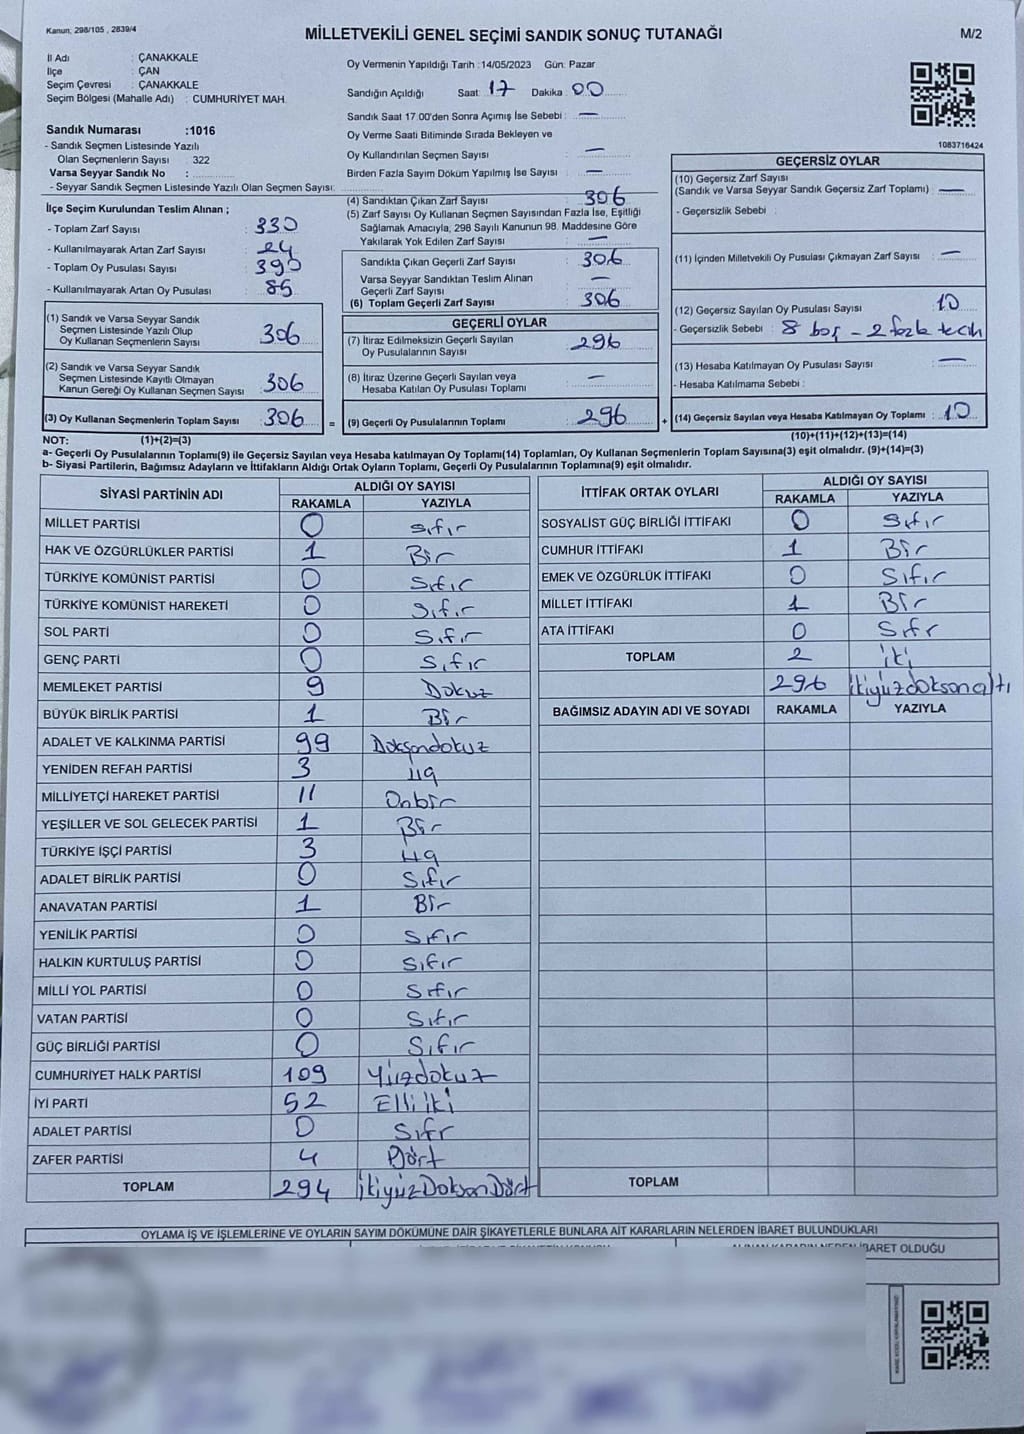 Kanun; 298/105 , 2839/4
MİLLETVEKİLİ GENEL SEÇİMİ SANDIK SONUÇ TUTANAĞI
M/2
İl Adı : ÇANAKKALE
İlçe : ÇAN
Seçim Çevresi : ÇANAKKALE
Seçim Bölgesi (Mahalle Adı) : CUMHURİYET MAH.
Sandık Numarası :1016
- Sandık Seçmen Listesinde Yazılı
Olan Seçmenlerin Sayısı : 322
Varsa Seyyar Sandık No :
- Seyyar Sandık Seçmen Listesinde Yazılı Olan Seçmen Sayısı:
İlçe Seçim Kurulundan Teslim Alınan ;
- Toplam Zarf Sayısı : 330
- Kullanılmayarak Artan Zarf Sayısı : 24
- Toplam Oy Pusulası Sayısı : 390
- Kullanılmayarak Artan Oy Pusulası : 85
(1) Sandık ve Varsa Seyyar Sandık
Seçmen Listesinde Yazılı Olup
Oy Kullanan Seçmenlerin Sayısı : 306
(2) Sandık ve Varsa Seyyar Sandık
Seçmen Listesinde Kayıtlı Olmayan
Kanun Gereği Oy Kullanan Seçmen Sayısı : 306
(3) Oy Kullanan Seçmenlerin Toplam Sayısı : 306
Oy Vermenin Yapıldığı Tarih :14/05/2023 Gün: Pazar
Sandığın Açıldığı Saat: 17 Dakika : 00
Sandık Saat 17.00'den Sonra Açımış İse Sebebi : —
Oy Verme Saati Bitiminde Sırada Bekleyen ve
Oy Kullandırılan Seçmen Sayısı : —
Birden Fazla Sayım Döküm Yapılmış İse Sayısı : —
(4) Sandıktan Çıkan Zarf Sayısı : 306
(5) Zarf Sayısı Oy Kullanan Seçmen Sayısından Fazla İse, Eşitliği
Sağlamak Amacıyla, 298 Sayılı Kanunun 98. Maddesine Göre
Yakılarak Yok Edilen Zarf Sayısı : —
Sandıkta Çıkan Geçerli Zarf Sayısı : 306
Varsa Seyyar Sandıktan Teslim Alınan
Geçerli Zarf Sayısı : —
(6) Toplam Geçerli Zarf Sayısı : 306
GEÇERLİ OYLAR
(7) İtiraz Edilmeksizin Geçerli Sayılan
Oy Pusulalarının Sayısı : 296
(8) İtiraz Üzerine Geçerli Sayılan veya
Hesaba Katılan Oy Pusulası Toplamı : —
= (9) Geçerli Oy Pusulalarının Toplamı : 296
1083716424
GEÇERSİZ OYLAR
(10) Geçersiz Zarf Sayısı
(Sandık ve Varsa Seyyar Sandık Geçersiz Zarf Toplamı) : —
- Geçersizlik Sebebi :
(11) İçinden Milletvekili Oy Pusulası Çıkmayan Zarf Sayısı : —
(12) Geçersiz Sayılan Oy Pusulası Sayısı : 10
- Geçersizlik Sebebi : 8 boş - 2 fazla tercih
(13) Hesaba Katılmayan Oy Pusulası Sayısı : —
- Hesaba Katılmama Sebebi :
+ (14) Geçersiz Sayılan veya Hesaba Katılmayan Oy Toplamı : 10
NOT: (1)+(2)=(3) (10)+(11)+(12)+(13)=(14)
a- Geçerli Oy Pusulalarının Toplamı(9) ile Geçersiz Sayılan veya Hesaba katılmayan Oy Toplamı(14) Toplamları, Oy Kullanan Seçmenlerin Toplam Sayısına(3) eşit olmalıdır. (9)+(14)=(3)
b- Siyasi Partilerin, Bağımsız Adayların ve İttifakların Aldığı Ortak Oyların Toplamı, Geçerli Oy Pusulalarının Toplamına(9) eşit olmalıdır.
SİYASİ PARTİNİN ADI ALDIĞI OY SAYISI
RAKAMLA YAZIYLA
MİLLET PARTİSİ 0 sıfır
HAK VE ÖZGÜRLÜKLER PARTİSİ 1 Bir
TÜRKİYE KOMÜNİST PARTİSİ 0 Sıfır
TÜRKİYE KOMÜNİST HAREKETİ 0 sıfır
SOL PARTİ 0 Sıfır
GENÇ PARTİ 0 Sıfır
MEMLEKET PARTİSİ 9 Dokuz
BÜYÜK BİRLİK PARTİSİ 1 Bir
ADALET VE KALKINMA PARTİSİ 99 Doksandokuz
YENİDEN REFAH PARTİSİ 3 üç
MİLLİYETÇİ HAREKET PARTİSİ 11 Onbir
YEŞİLLER VE SOL GELECEK PARTİSİ 1 Bir
TÜRKİYE İŞÇİ PARTİSİ 3 üç
ADALET BİRLİK PARTİSİ 0 Sıfır
ANAVATAN PARTİSİ 1 Bir
YENİLİK PARTİSİ 0 Sıfır
HALKIN KURTULUŞ PARTİSİ 0 Sıfır
MİLLİ YOL PARTİSİ 0 Sıfır
VATAN PARTİSİ 0 Sıfır
GÜÇ BİRLİĞİ PARTİSİ 0 Sıfır
CUMHURİYET HALK PARTİSİ 109 Yüzdokuz
İYİ PARTİ 52 Elli iki
ADALET PARTİSİ 0 Sıfr
ZAFER PARTİSİ 4 Dört
TOPLAM 294 ikiyüzDoksanDört
İTTİFAK ORTAK OYLARI ALDIĞI OY SAYISI
RAKAMLA YAZIYLA
SOSYALİST GÜÇ BİRLİĞİ İTTİFAKI 0 Sıfır
CUMHUR İTTİFAKI 1 Bir
EMEK VE ÖZGÜRLÜK İTTİFAKI 0 Sıfır
MİLLET İTTİFAKI 1 Bir
ATA İTTİFAKI 0 Sıfr
TOPLAM 2 iki
296 ikiyüzdoksanaltı
BAĞIMSIZ ADAYIN ADI VE SOYADI RAKAMLA YAZIYLA
TOPLAM
OYLAMA İŞ VE İŞLEMLERİNE VE OYLARIN SAYIM DÖKÜMÜNE DAİR ŞİKAYETLERLE BUNLARA AİT KARARLARIN NELERDEN İBARET BULUNDUKLARI
İBARET OLDUĞU